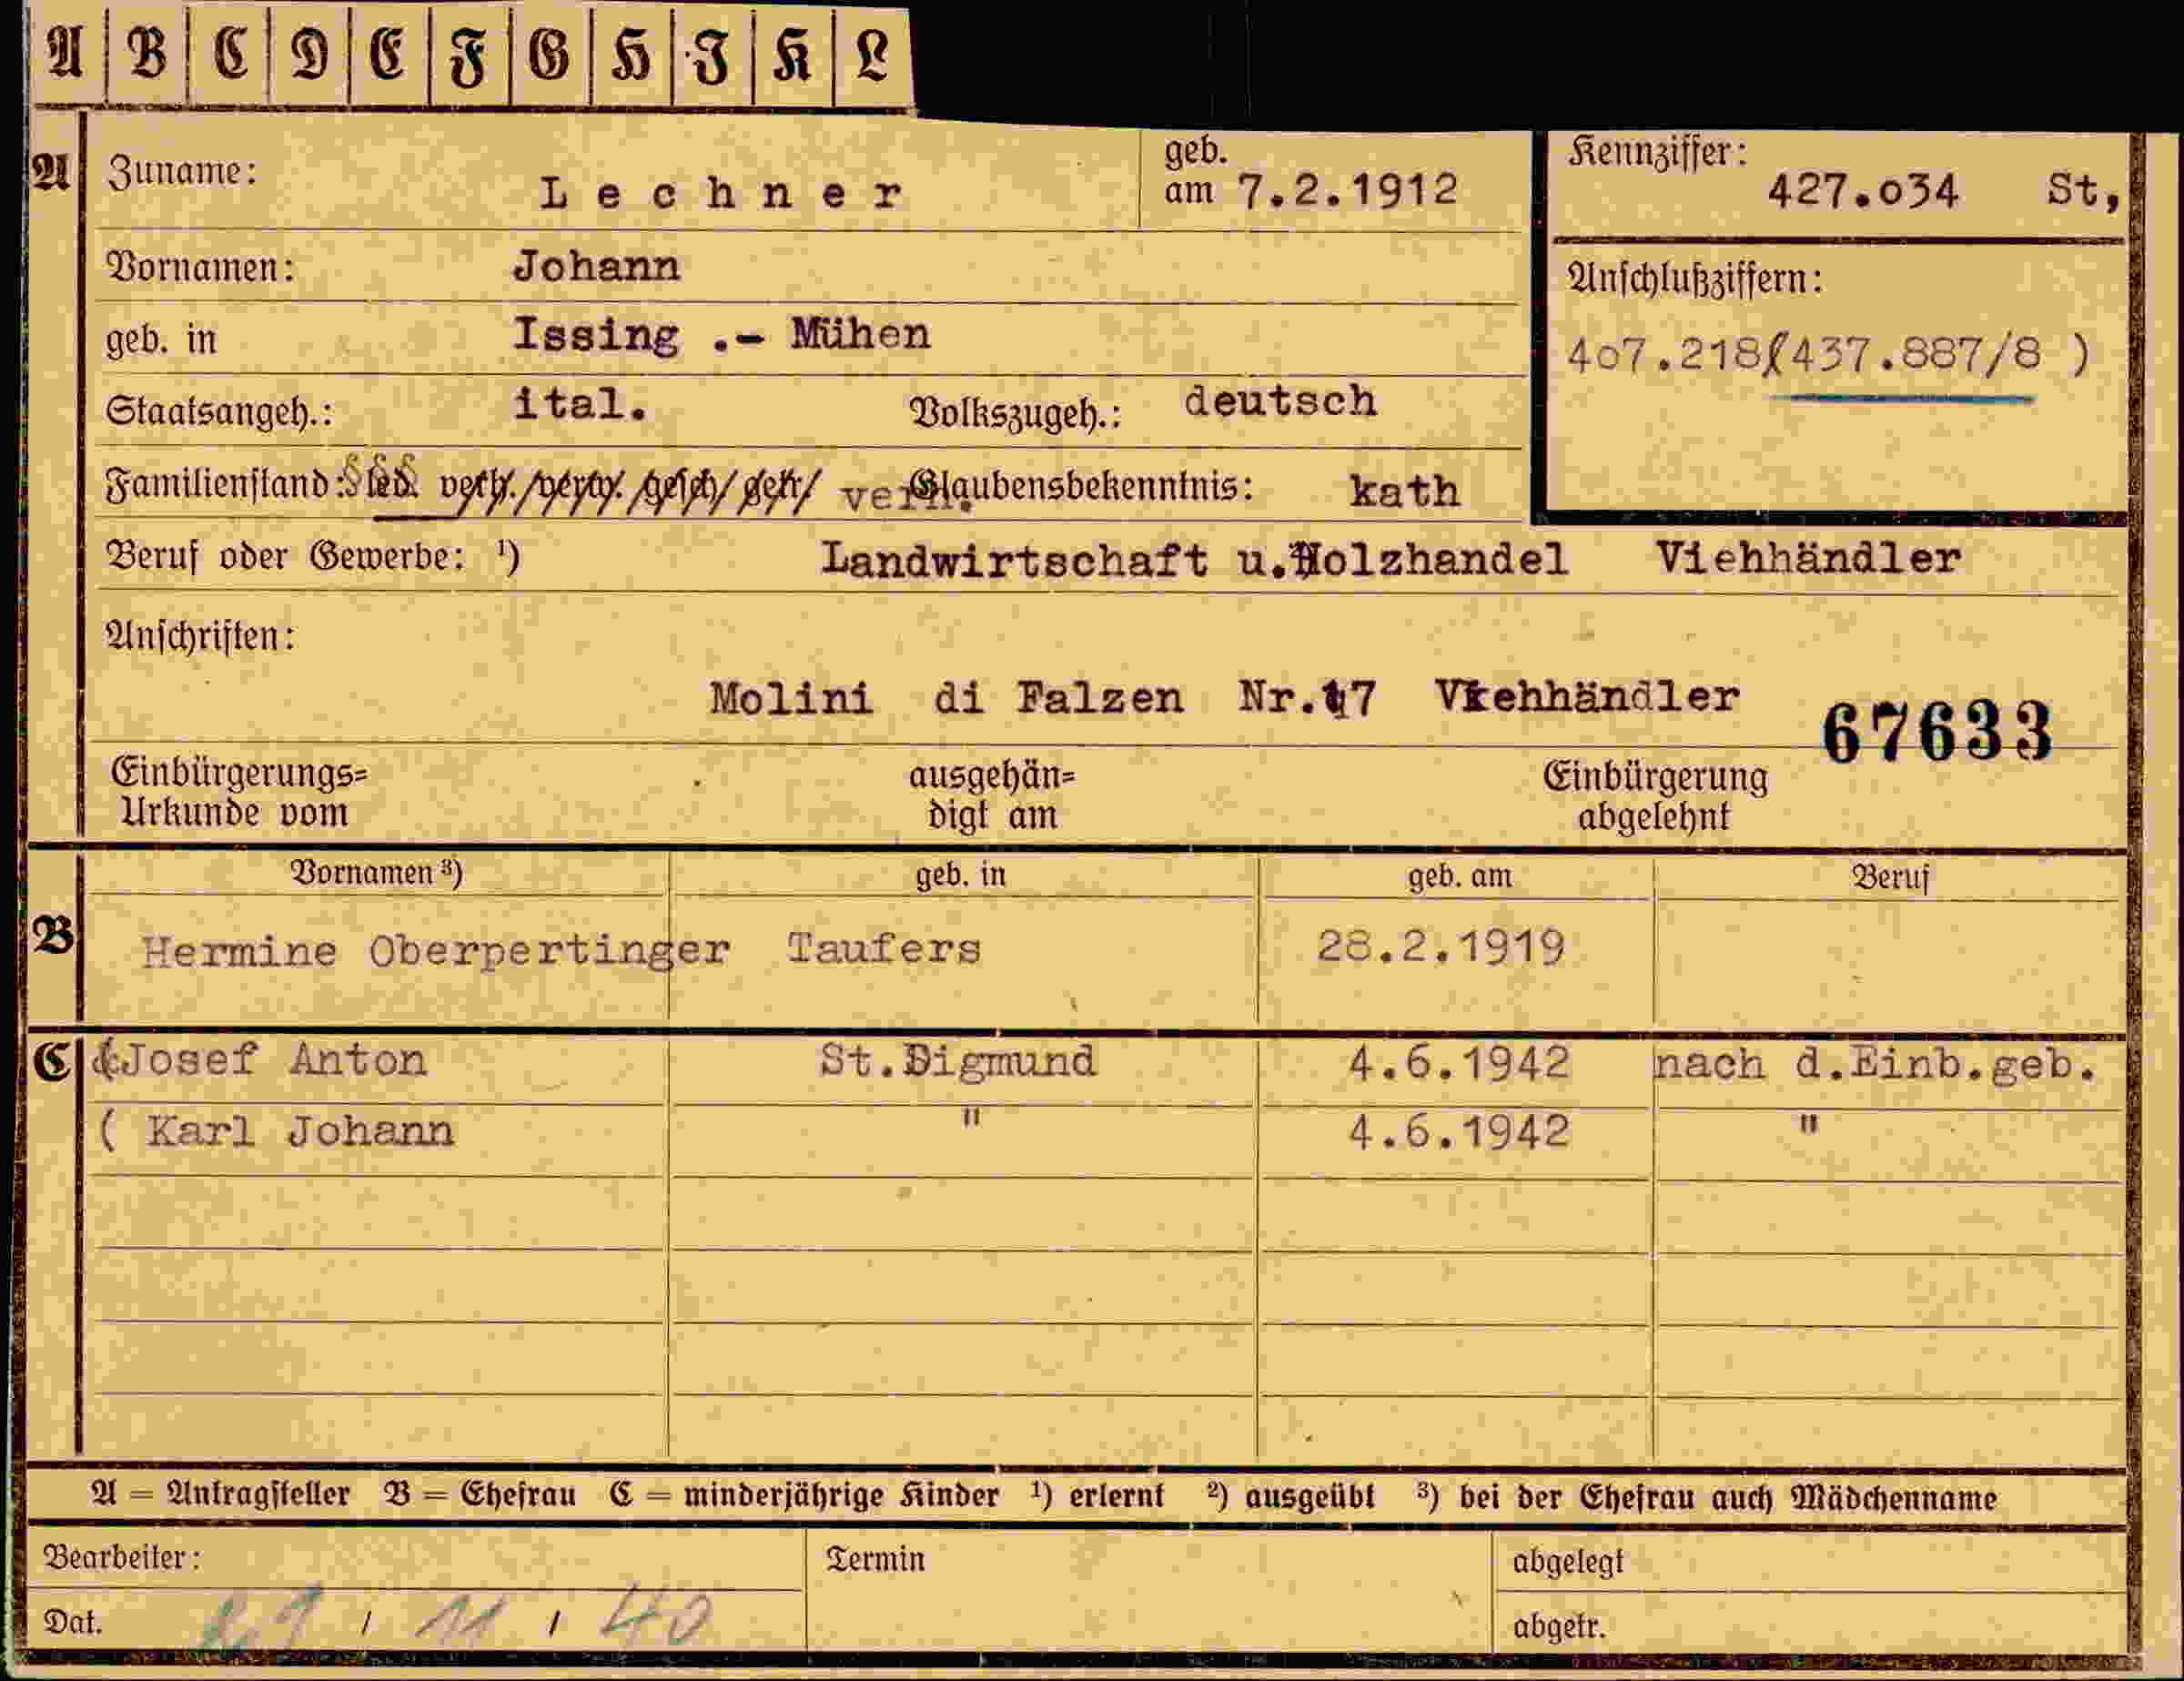 A B C D E F G H J K L
A Zuname: Lechner geb. am 7.2.1912
Kennziffer: 427.034 St,
Vornamen: Johann
Anschlußziffern:
geb. in Issing .- Mühen
407.218/(437.887/8 )
Staatsangeh.: ital. Volkszugeh.: deutsch
Familienstand: led. verh./verw./gesch/getr/ verh. Glaubensbekenntnis: kath
Beruf oder Gewerbe: ¹) Landwirtschaft u.Holzhandel Viehhändler
Anschriften:
Molini di Falzen Nr.17 Viehhändler
67633
Einbürgerungs= ausgehän= Einbürgerung
Urkunde vom digt am abgelehnt
Vornamen ³) geb. in geb. am Beruf
B Hermine Oberpertinger Taufers 28.2.1919
C (Josef Anton St.Sigmund 4.6.1942 nach d.Einb.geb.
( Karl Johann " 4.6.1942 "
A = Antragsteller B = Ehefrau C = minderjährige Kinder ¹) erlernt ²) ausgeübt ³) bei der Ehefrau auch Mädchenname
Bearbeiter: Termin abgelegt
Dat. 29 / 11 / 40 abgetr.